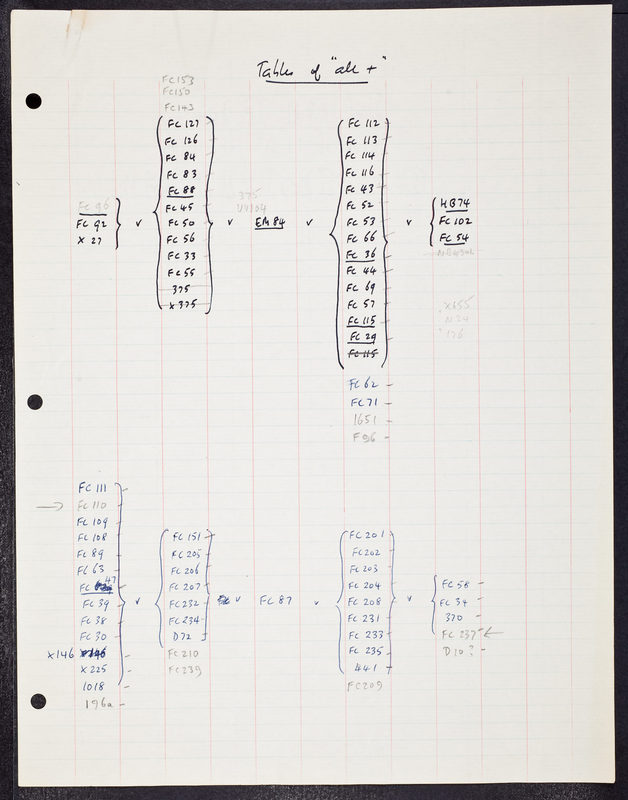 Tables of "ale +"
FC153
FC150
FC143
FC 96
FC 92
X 27
v
FC 127
FC 126
FC 84
FC 83
FC 88
FC 45
FC 50
FC 56
FC 33
FC 55
375
X 375
v
375
EM 84
v
FC 112
FC 113
FC 114
FC 116
FC 43
FC 52
FC 53
FC 66
FC 36
FC 44
FC 69
FC 57
FC 115
FC 29
FC 115
FC 62
FC 71
1651
F 96
v
HB74
FC 102
FC 54
X655
N 24
176
FC 111
FC 110
FC 109
FC 108
FC 89
FC 63
FC 47
FC 39
FC 38
FC 30
X146
X 225
1018
196a
v
FC 151
FC 205
FC 206
FC 207
FC 232
FC 234
D72
FC 210
FC 239
v
FC 87
v
FC 201
FC 202
FC 203
FC 204
FC 208
FC 231
FC 233
FC 235
441
FC 209
v
FC 58
FC 34
370
FC 237
D10?